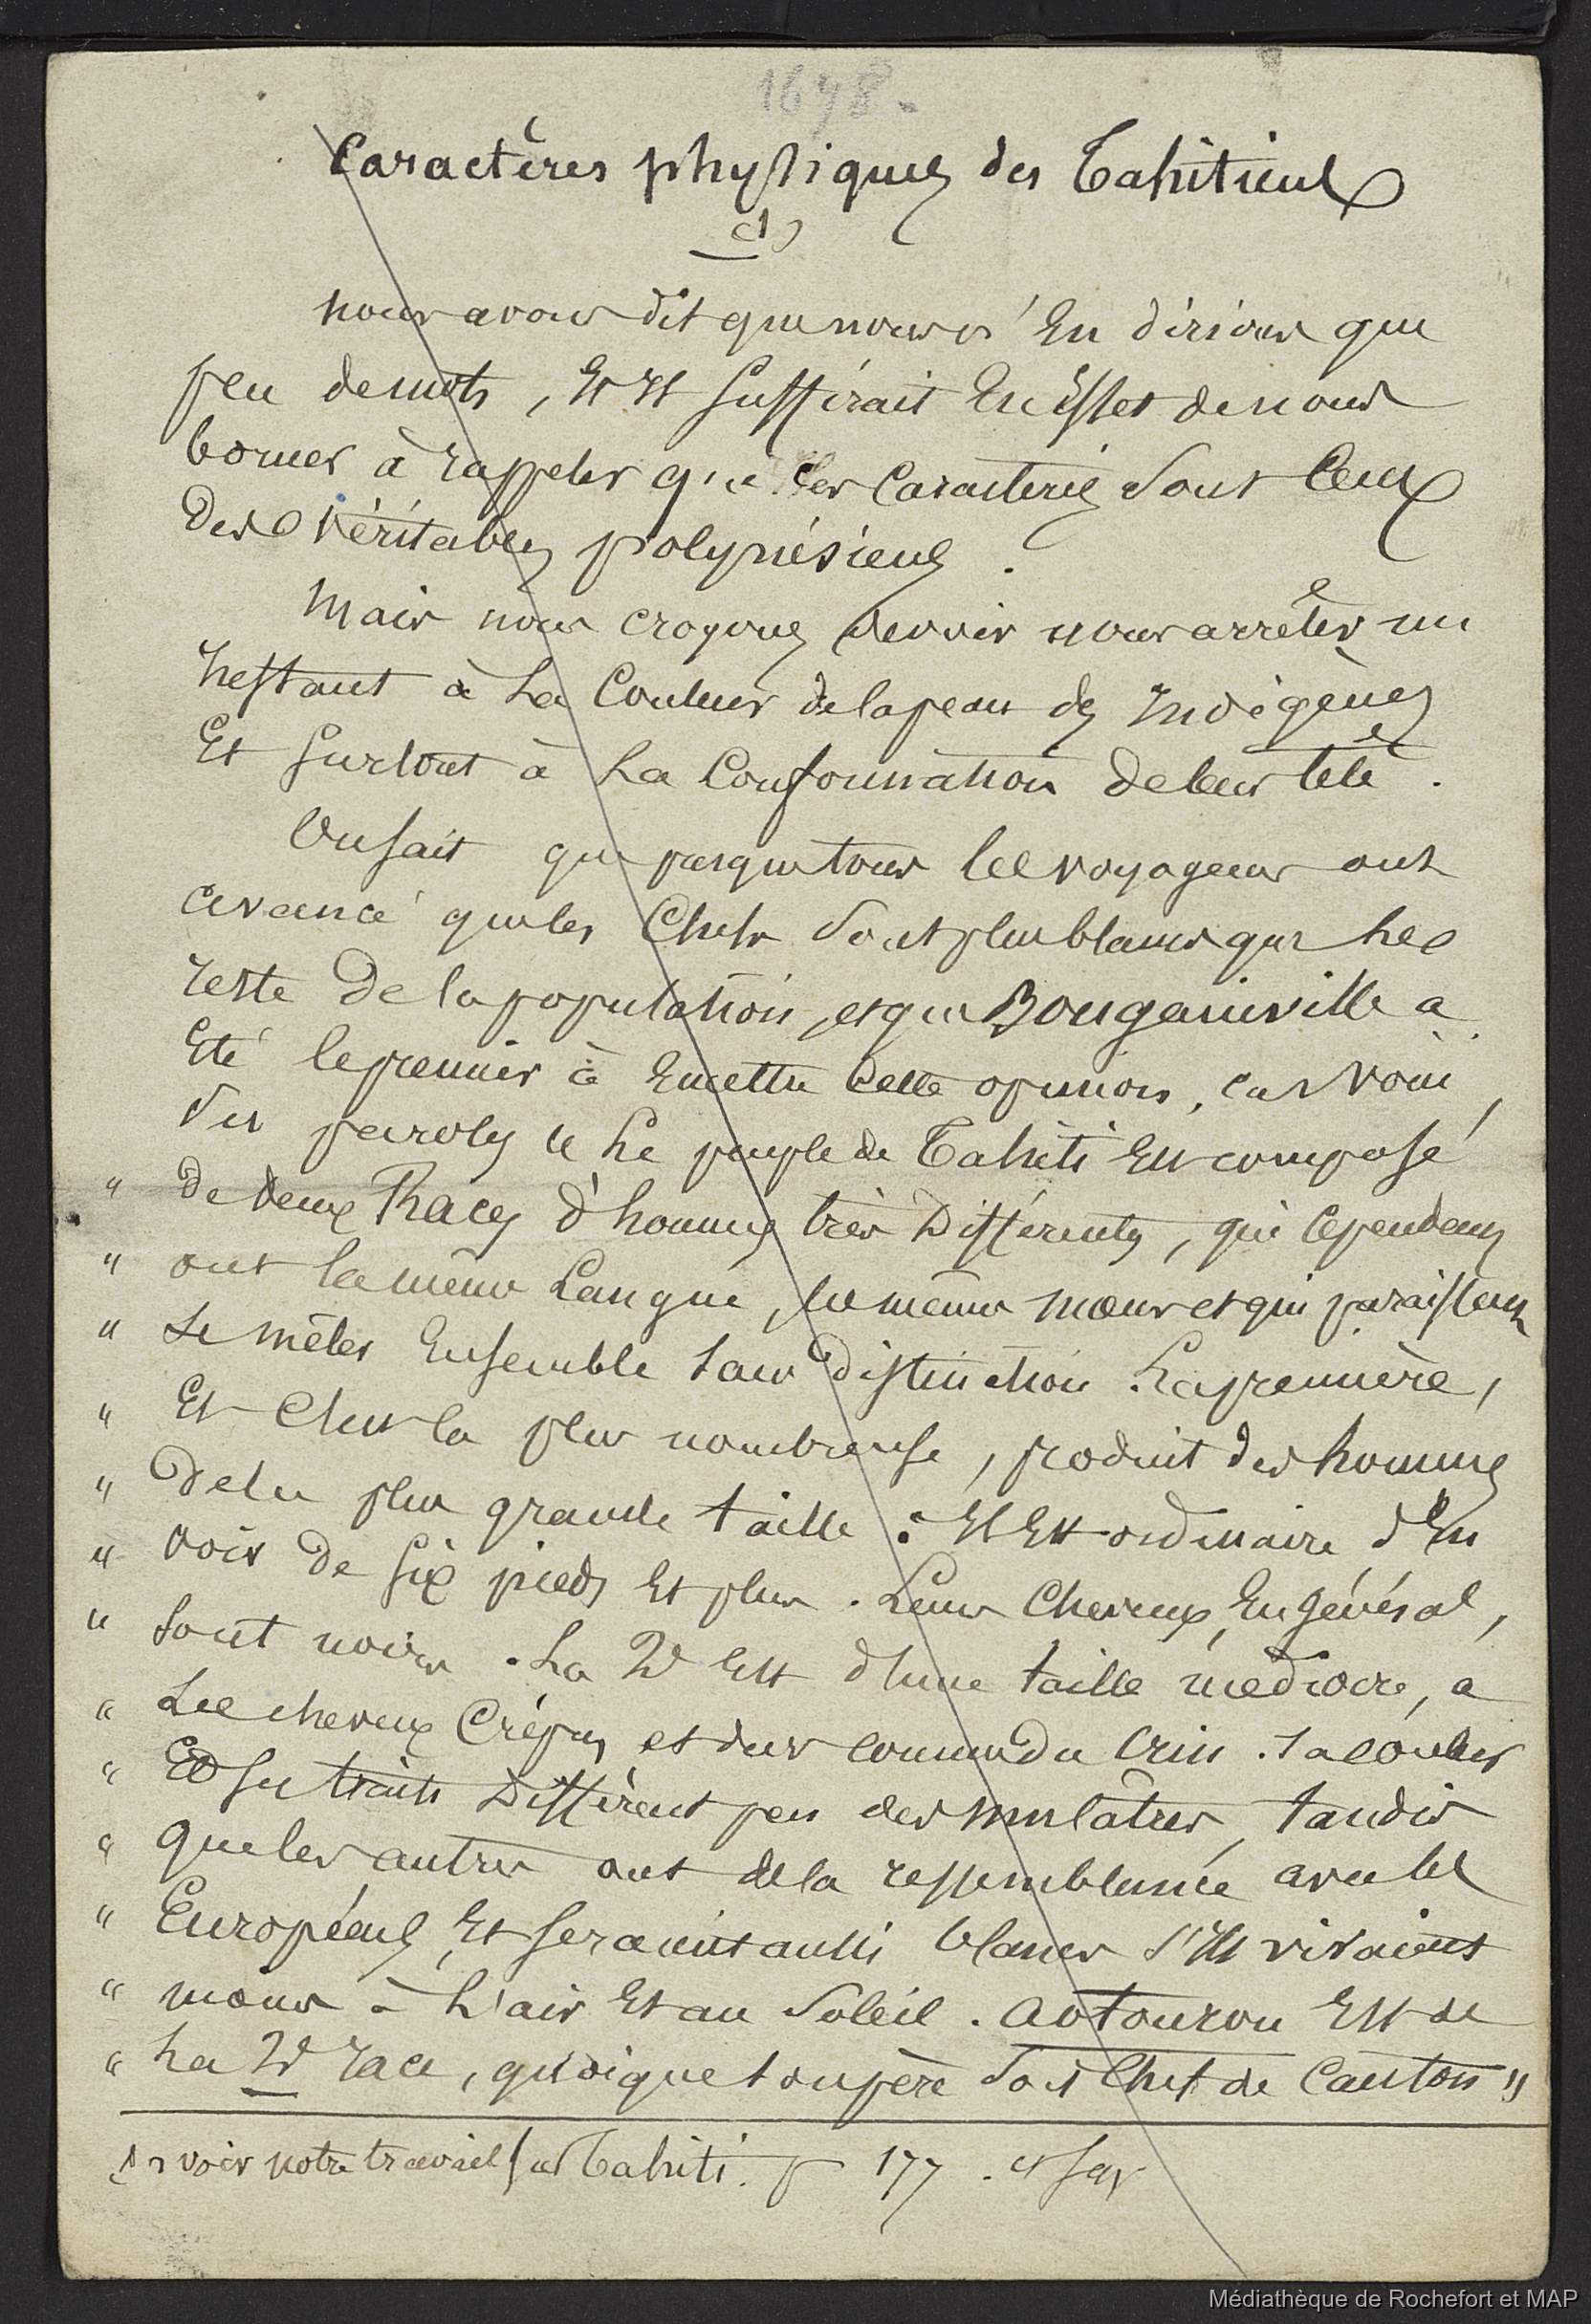 1648.
Caractères physiques des Tahitiens
(1)
nous avons dit que nous n'En dirions que
peu de mots, Et Il suffirait En Effet de nous
borner à rappeler que les Caractères sont Ceux
Des véritables polynésiens.
Mais nous croyons devoir nous arrêter un
Instant à La Couleur de la peau des Indigènes
Et surtout à La Conformation de leur tête.
On sait que presque tous les voyageurs ont
avancé que les Chefs sont plus blancs que Le
reste De la population, et que Bougainville a
Eté le premier à Emettre Cette opinion, car voici
ses paroles « Le peuple de Tahiti Est composé
" De deux Races d'hommes très Différentes, qui Cependant
" ont la même Langue, les mêmes mœurs et qui paraissent
" Se mêler Ensemble sans Distinction. La première,
" Et C'est la plus nombreuse, produit des hommes
" De la plus grande taille : Il Est ordinaire d'En
" voir De six pieds Et plus. Leurs Cheveux, En général,
" sont noirs. La 2e Est d'une taille médiocre, a
" Les cheveux Crépus et durs comme du Crin. sa couleur
" Et ses traits Différent peu des mulâtres, tandis
" que les autres ont de la ressemblance avec les
" Européens, Et seraient aussi blancs s'Ils vivaient
" moins à L'air Et au Soleil. Aotourou Est de
" La 2e race, quoique son père soit Chef de Canton »
(1) voir notre travail sur Tahiti. p 177. et suiv
Médiathèque de Rochefort et MAP